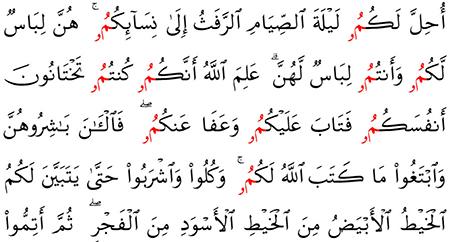 أُحِلَّ لَكُمُۥ لَيْلَةَ ٱلصِّيَامِ ٱلرَّفَثُ إِلَىٰ نِسَآئِكُمُۥ ۚ هُنَّ لِبَاسٌ
لَّكُمُۥ وَأَنتُمُۥ لِبَاسٌ لَّهُنَّ ۗ عَلِمَ ٱللَّهُ أَنَّكُمُۥ كُنتُمُۥ تَخْتَانُونَ
أَنفُسَكُمُۥ فَتَابَ عَلَيْكُمُۥ وَعَفَا عَنكُمُۥ ۖ فَٱلْـَٰٔنَ بَـٰشِرُوهُنَّ
وَٱبْتَغُوا۟ مَا كَتَبَ ٱللَّهُ لَكُمُۥ ۚ وَكُلُوا۟ وَٱشْرَبُوا۟ حَتَّىٰ يَتَبَيَّنَ لَكُمُ
ٱلْخَيْطُ ٱلْأَبْيَضُ مِنَ ٱلْخَيْطِ ٱلْأَسْوَدِ مِنَ ٱلْفَجْرِ ۖ ثُمَّ أَتِمُّوا۟